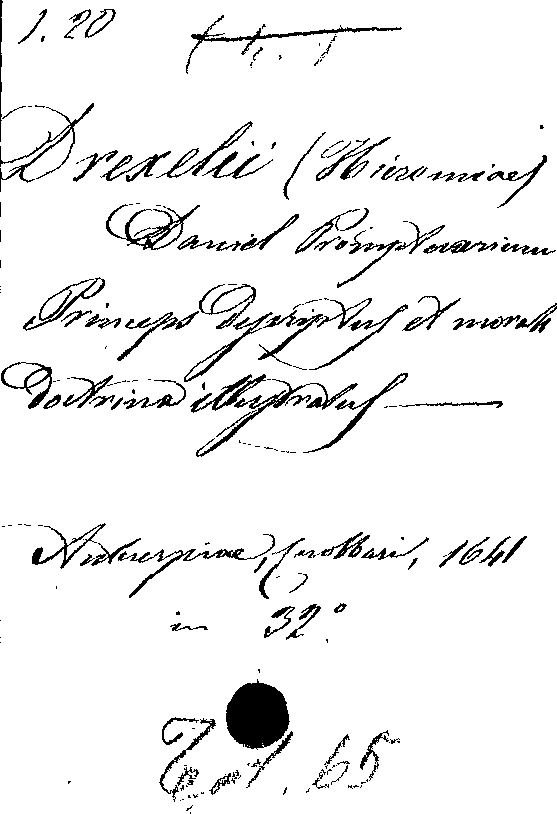 1.20
Drexelii (Hieremiae)
Daniel Promptuarium
Princeps descriptus et morali
doctrina illustratus —
Antuerpiae, Cnobbari, 1641
in 32°
65